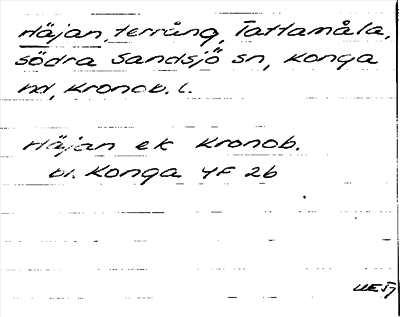 Häjan, terräng, Tattamåla,
södra Sandsjö sn, Konga
hd, Kronob. l.
Häjan ek Kronob.
bl. Konga 4F 2b